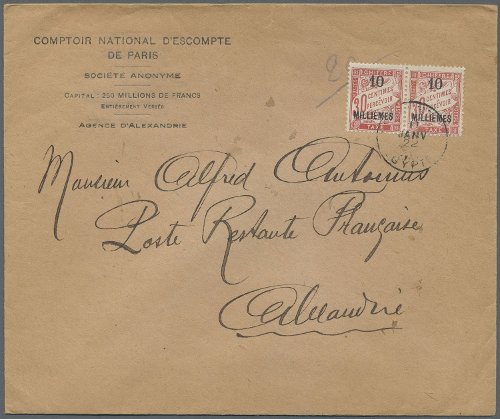 COMPTOIR NATIONAL D'ESCOMPTE
DE PARIS
SOCIÉTÉ ANONYME
CAPITAL : 250 MILLIONS DE FRANCS
ENTIÈREMENT VERSÉS
AGENCE D'ALEXANDRIE
2
CHIFFRE CHIFFRE
10 10
CENTIMES CENTIMES
À PERCEVOIR À PERCEVOIR
MILLIEMES MILLIEMES
TAXE TAXE
JANV
22
Monsieur Alfred Antonius
Poste Restante Française
Alexandrie